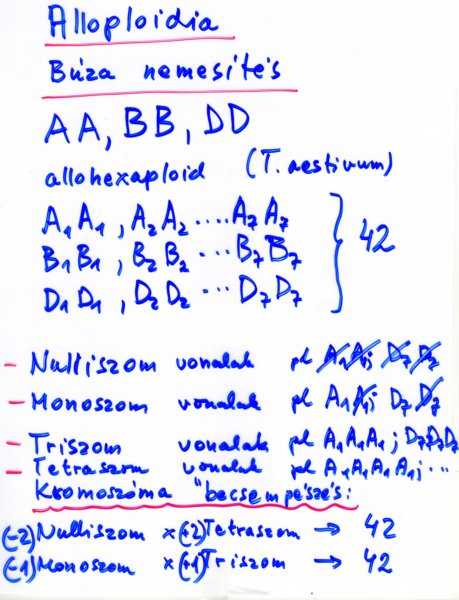 Alloploidia
Búza nemesítés
AA, BB, DD
allohexaploid (T. aestivum)
A₁A₁, A₂A₂ .... A₇A₇
B₁B₁, B₂B₂ ... B₇B₇ } 42
D₁D₁, D₂D₂ ... D₇D₇
- Nulliszom vonalak pl A₁A₁; D₇D₇
- Monoszom vonalak pl A₁A₁; D₇D₇
- Triszom vonalak pl A₁A₁A₁; D₇D₇D₇
- Tetraszom vonalak pl A₁A₁A₁A₁; ...
Kromoszóma "becsempészés:
(-2)Nulliszom x(+2)Tetraszom → 42
(-1)Monoszom x(+1)Triszom → 42